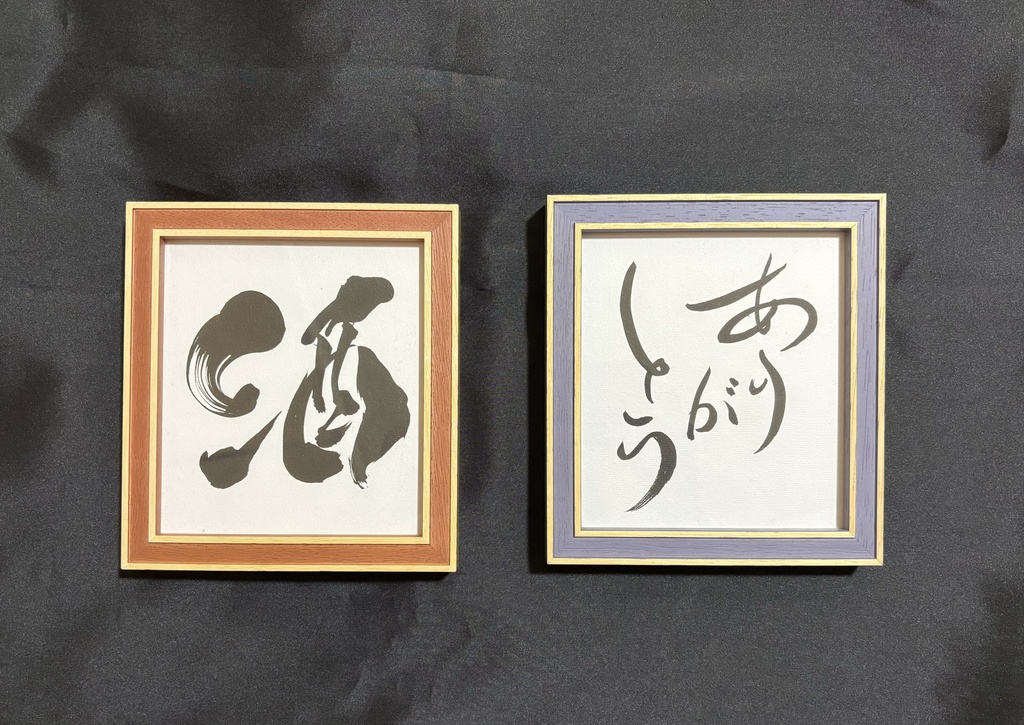 酒
ありが
とう